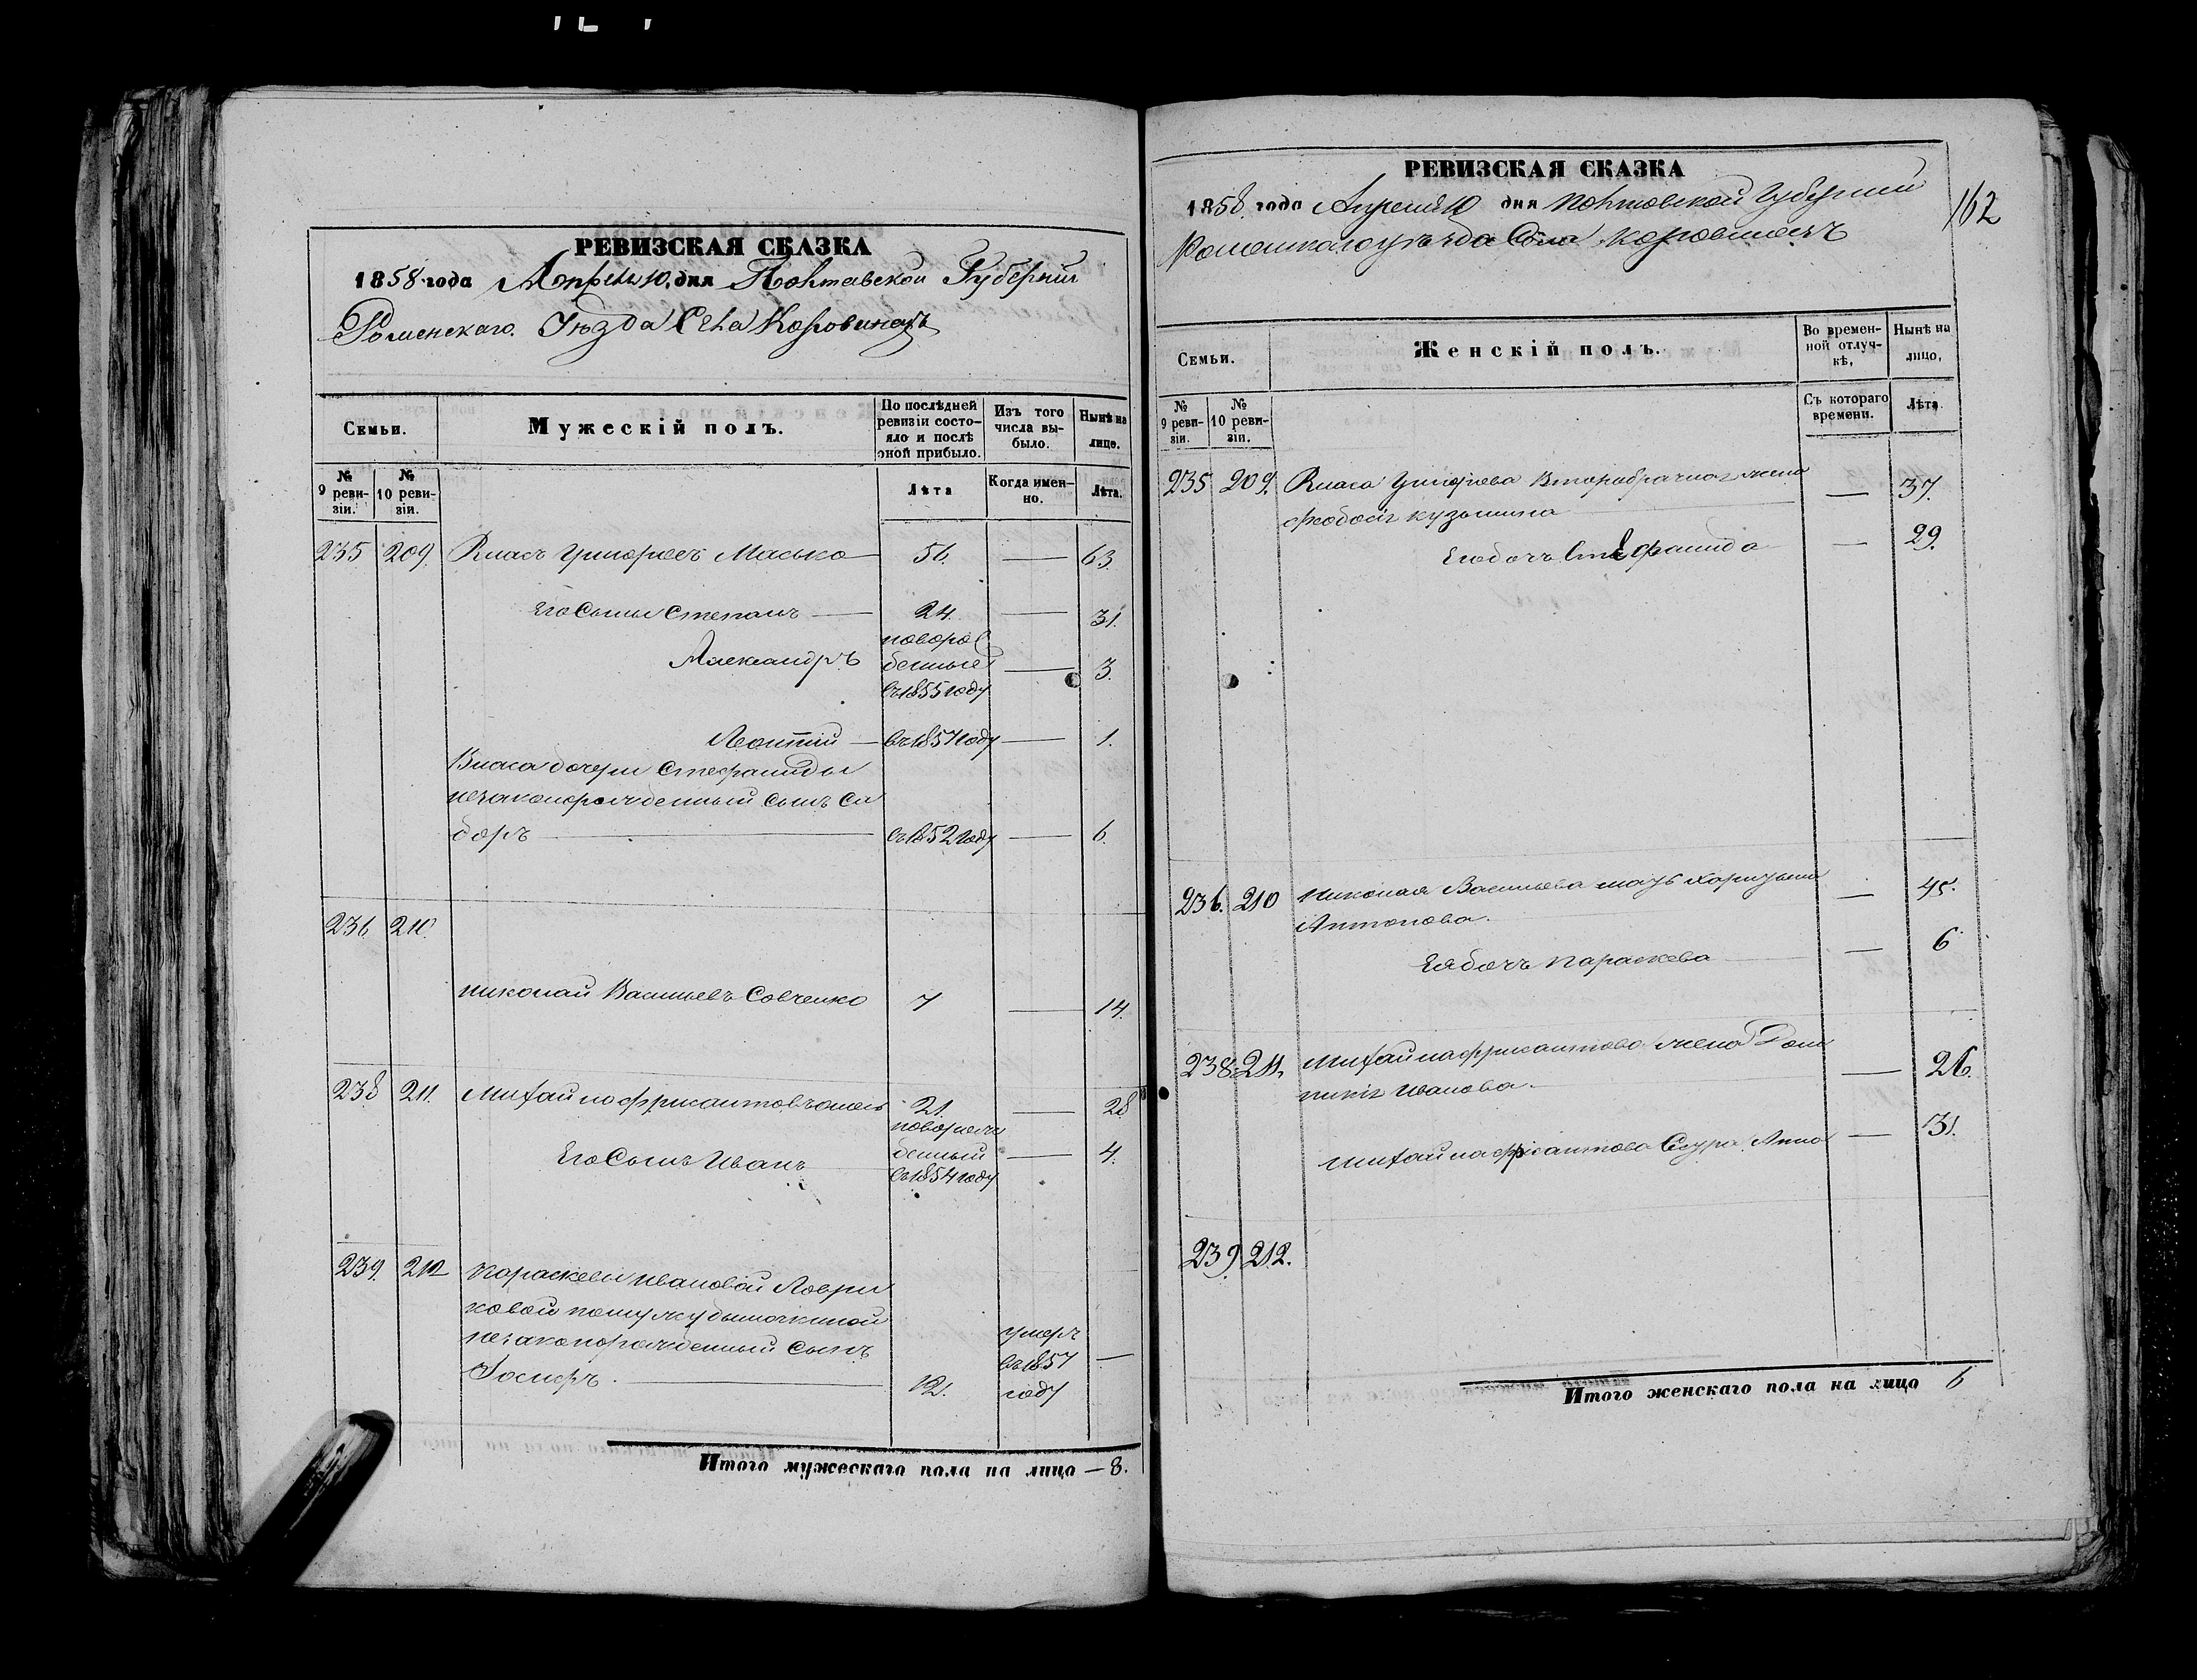 РЕВИЗСКАЯ СКАЗКА
1858 года Апреля 10 дня Полтавской Губернии
Роменскаго Уѣзда Села Коровинецъ
Семьи.
Мужескій полъ.
По послѣдней ревизіи состояло и послѣ оной прибыло.
Изъ того числа выбыло.
Нынѣ на лицо.
№ 9 ревизіи.
№ 10 ревизіи.
Лѣта
Когда именно.
Лѣта.
235 209. Власъ Григорьевъ Масько 56. — 63.
Его Сыны Степанъ — 24. — 31.
Александръ новорожденные въ 1855 году — 3.
Леонтій — въ 1857 году — 1.
Власа дочери Стефаниды
незаконорожденный сынъ Си
доръ — въ 1852 году — 6.
236 210.
Николай Васильевъ Совченко 7 — 14.
238 211. Михайло 21. — 28
Его Сынъ Иванъ новорожденный въ 1854 году — 4.
239. 212 Параскеви Ивановой
незаконорожденный сынъ
12. умеръ въ 1857 году —
Итого мужескаго пола на лицо — 8.
РЕВИЗСКАЯ СКАЗКА
1858 года Апреля 10 дня Полтавской Губернии
Роменскаго уѣзда Села Коровинецъ
162
Семьи.
Женскій полъ.
Во временной отлучкѣ,
Нынѣ на лицо,
№ 9 ревизіи.
№ 10 ревизіи.
Съ котораго времени.
Лѣта.
235 209. Власа Григорьева Второбрачная жена — 37.
Кузьмина
Его дочь Стефанида — 29.
236. 210 Николая Васильева мать — 45.
Антонова.
Ея дочь Параскева — 6
238. 211. жена Дом
никія Иванова. — 26.
Сестра Анна — 31.
239 212.
Итого женскаго пола на лицо 6